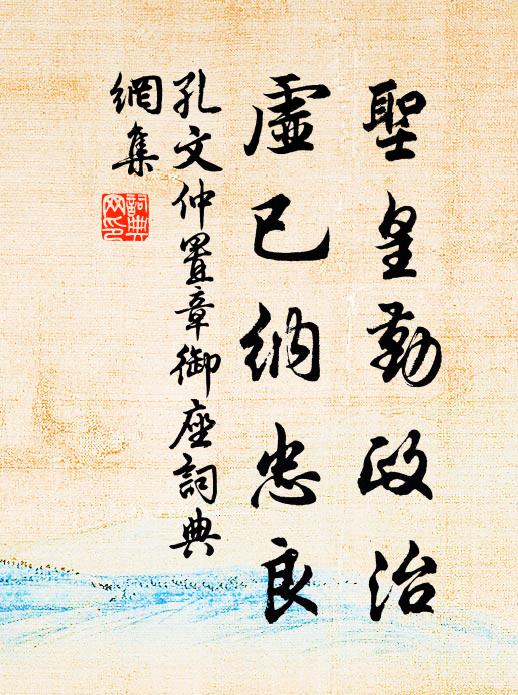 聖皇勤政治
虛已納忠良
孔文仲置章御座詞典
網集
詞典網印